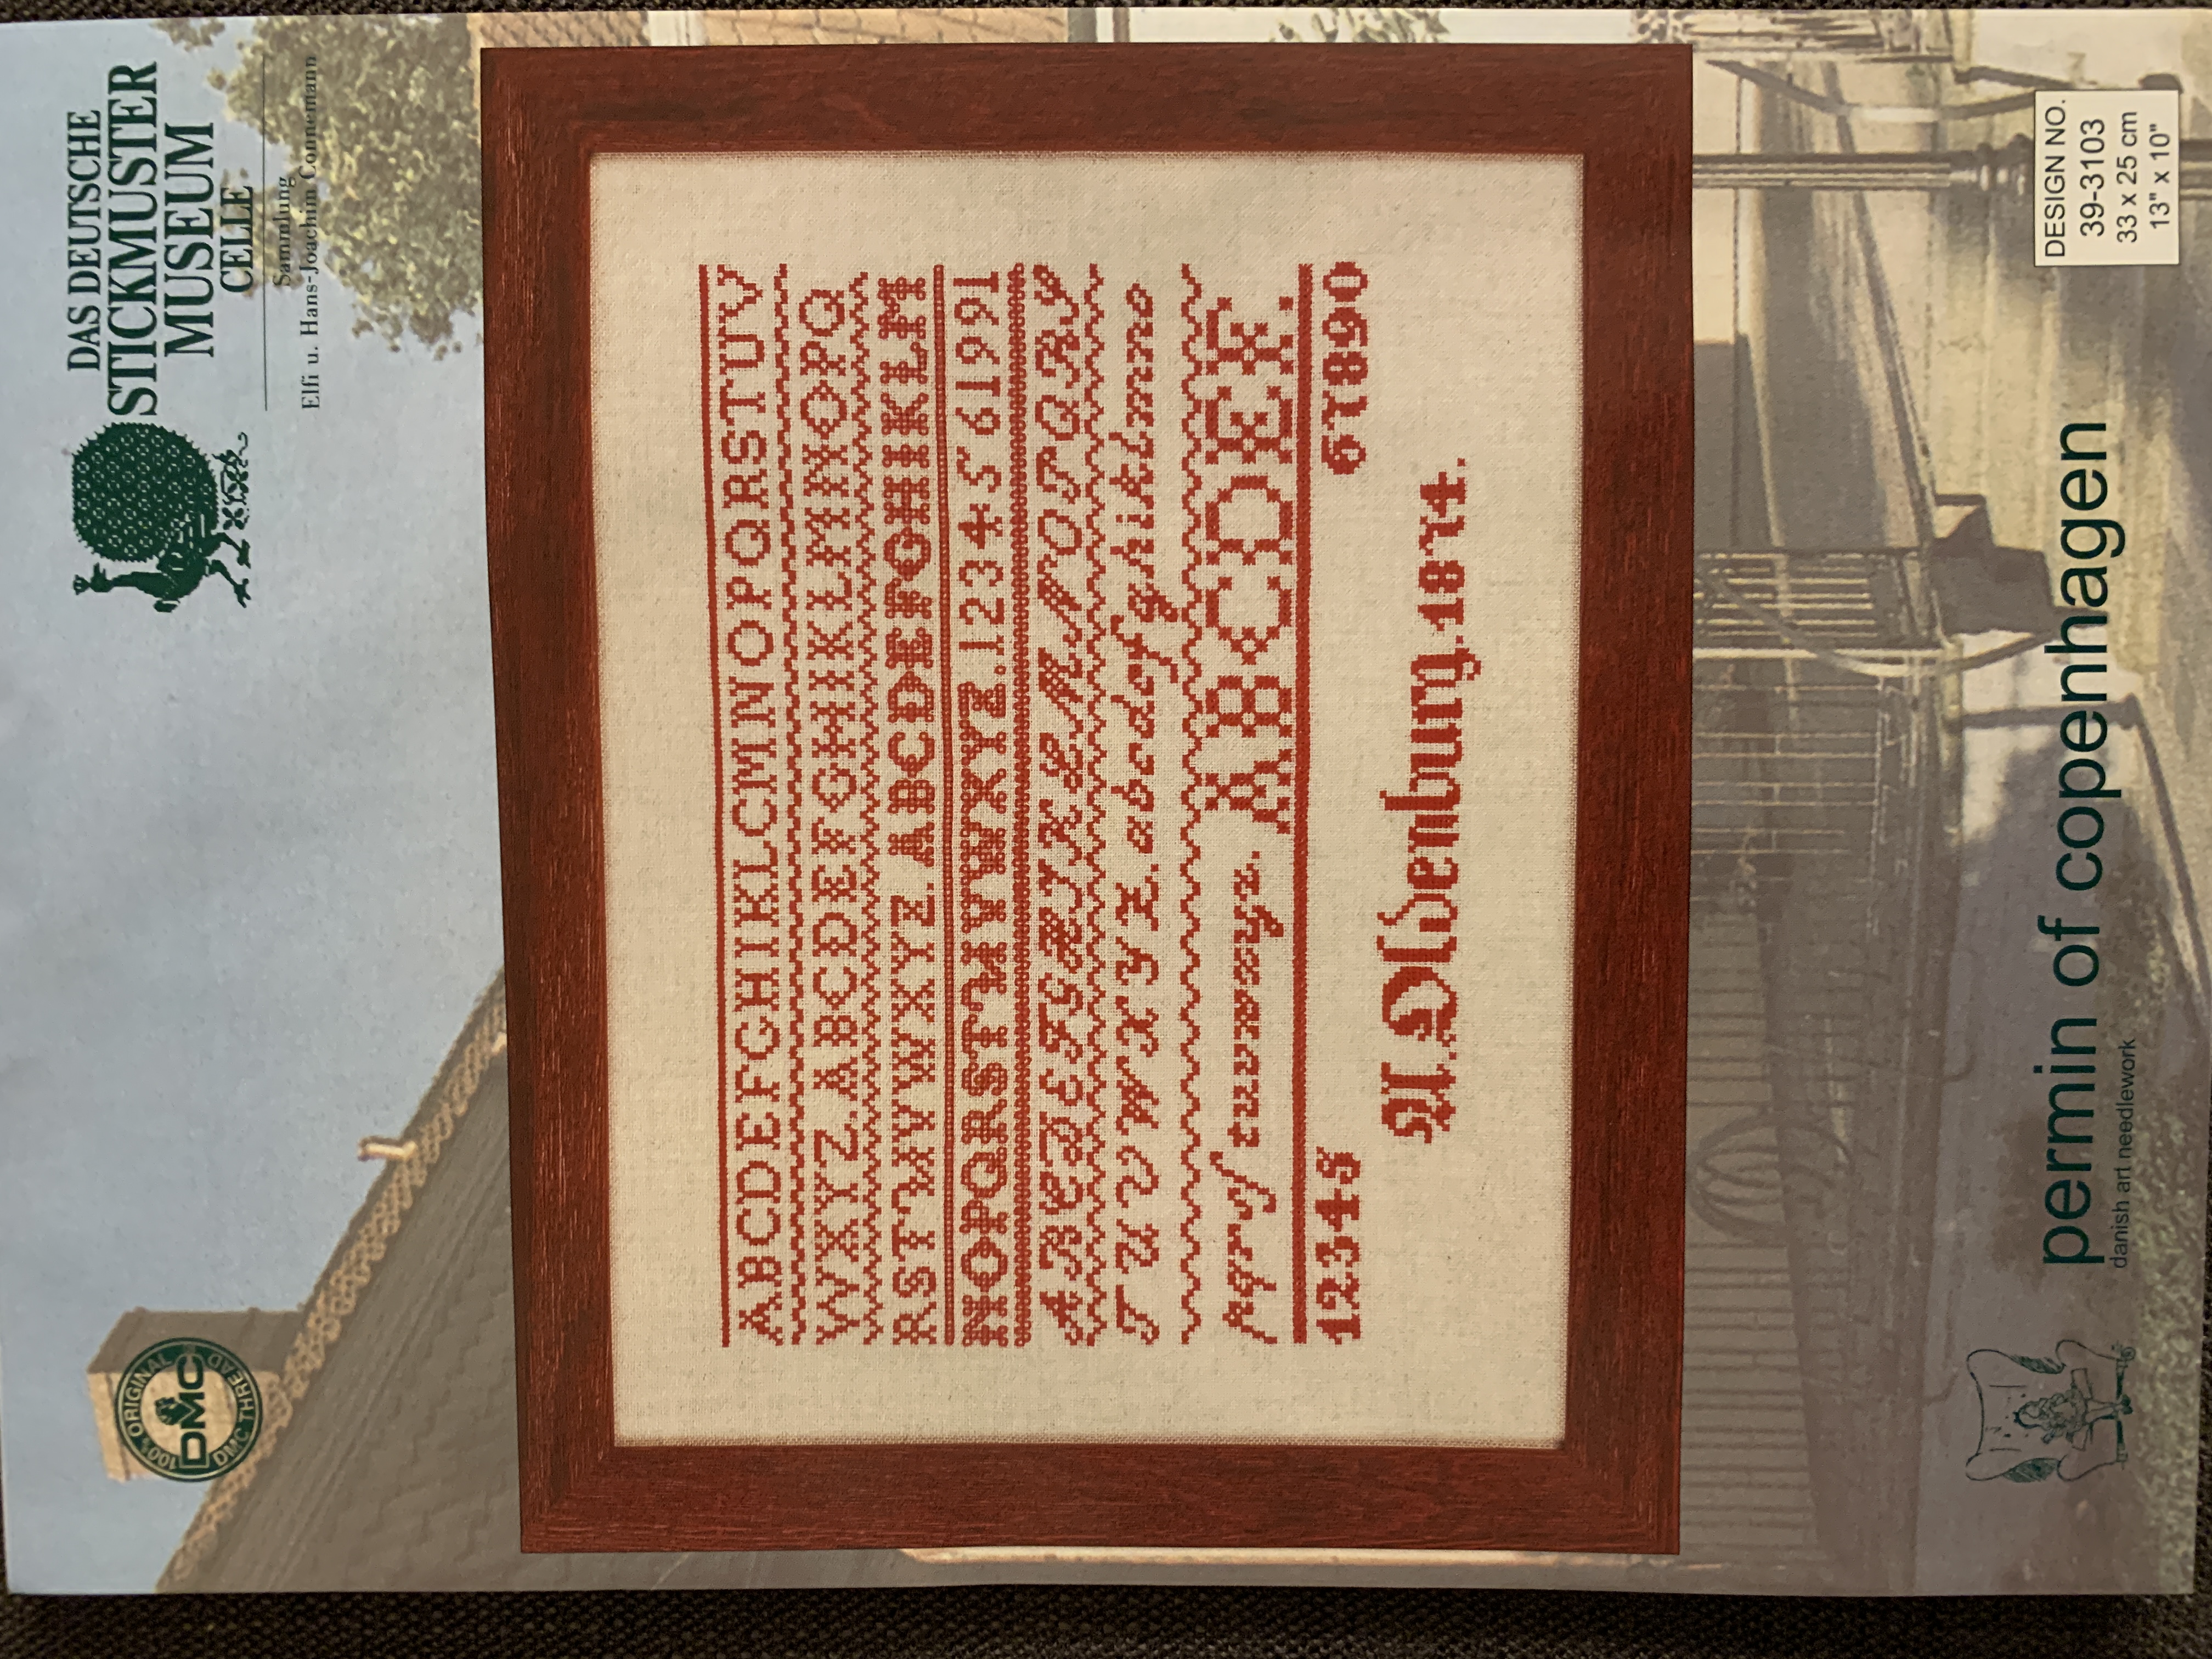 100% ORIGINAL
DMC
DMC THREAD
DAS DEUTSCHE
STICKMUSTER
MUSEUM
CELLE
Sammlung
Elfi u. Hans-Joachim Connemann
ABCDEFGHIKLCMNOPQRSTUV
WXYZ.ABCDEFGHIKLMNOPQ
RSTUVWXYZ.ABCDEFGHIKLM
NOPQRSTUVWXYZ.1234561991
ABCDEFGHIKLMNOPQRS
TUVWXYZ.abcdefghiklmno
pqrſtuvwxyz. ABCDEF.
12345 67890
A.Oldenburg.1874.
permin of copenhagen
danish art needlework
DESIGN NO.
39-3103
33 x 25 cm
13" x 10"